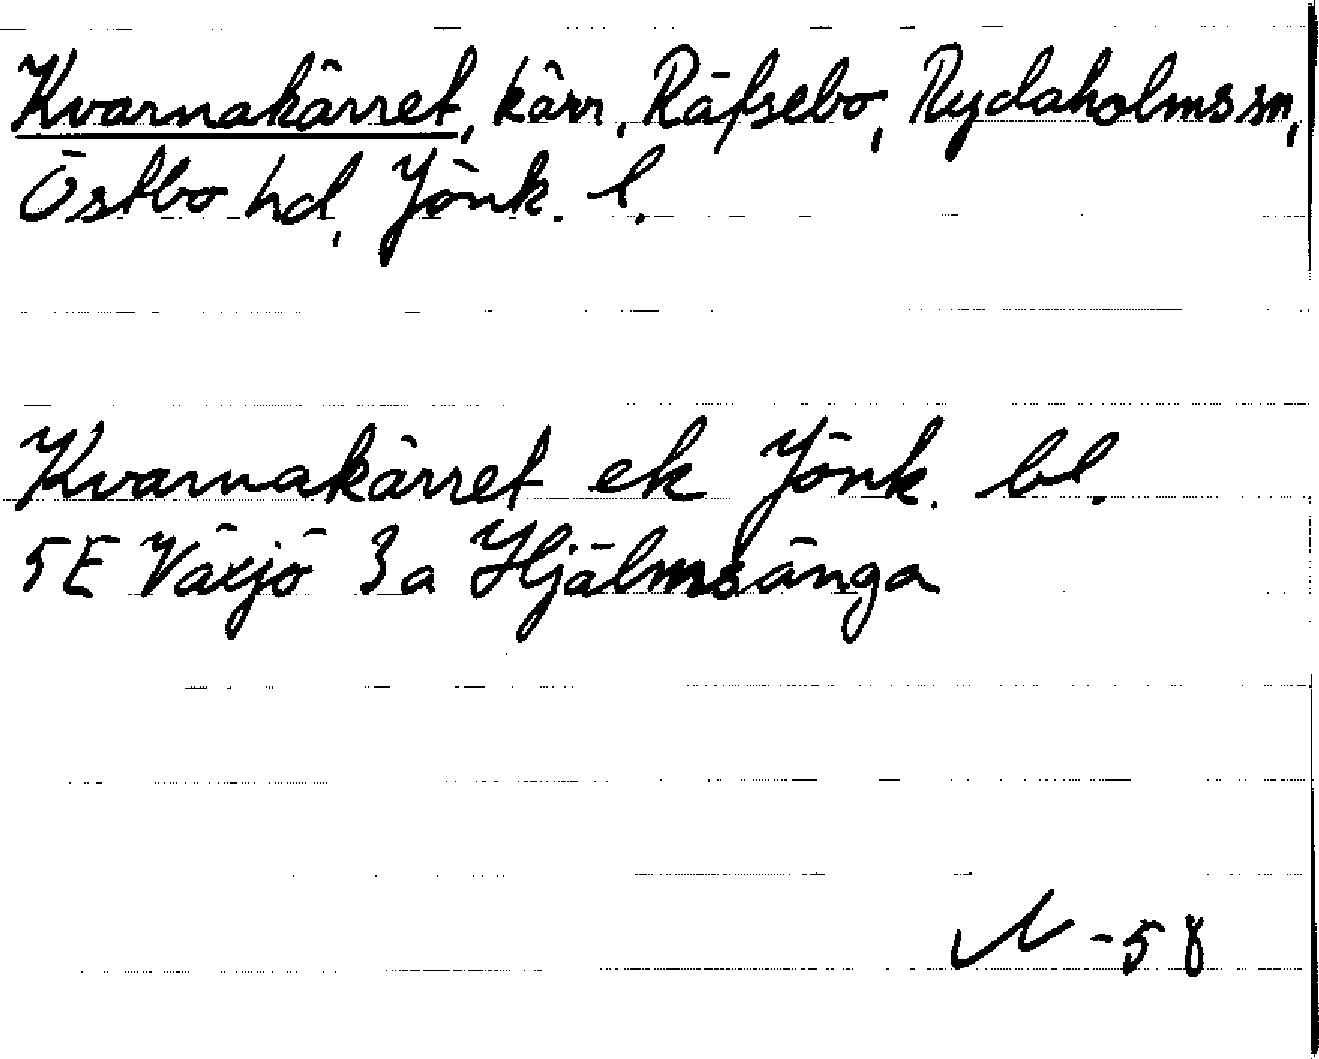 Kvarnakärret, kärr, Räfsebo, Rydaholms sn,
Östbo hd, Jönk. l.
Kvarnakärret ek Jönk. bl.
5E Växjö 3a Hjälmsänga
-58